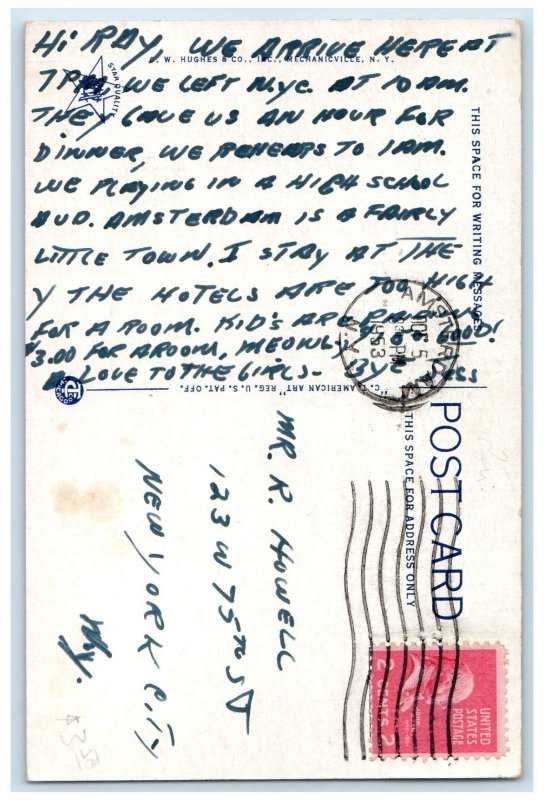 HI RAY, WE ARRIVE HERE AT
C. W. HUGHES & CO., INC., MECHANICVILLE, N. Y.
STAR QUALITY
7 PM, WE LEFT NYC. AT 10 AM.
THEY GAVE US AN HOUR FOR
DINNER, WE REHEARS TO 1AM.
WE PLAYING IN A HIGH SCHOOL
AUD. AMSTERDAM IS A FAIRLY
LITTLE TOWN. I STAY AT THE
Y THE HOTELS ARE TOO HIGH
FOR A ROOM. KID'S ARE GOLD!
$3.00 FOR A ROOM, MEONLY
LOVE TO THE GIRLS. BYE
THIS SPACE FOR WRITING MESSAGES
"C. T. AMERICAN ART" REG. U. S. PAT. OFF.
AMSTERDAM
OCT 5
PM
1953
N.Y.
POST CARD
THIS SPACE FOR ADDRESS ONLY
MR. R. HOWELL
123 W 75TH ST
NEW YORK CITY
N.Y.
UNITED
STATES
POSTAGE
2 CENTS 2